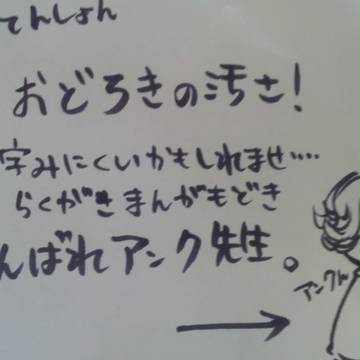 てんしょん
おどろきの汚さ!
字みにくいかもしれませ....
らくがきまんがもどき
んばれアンク先生。
アンクん